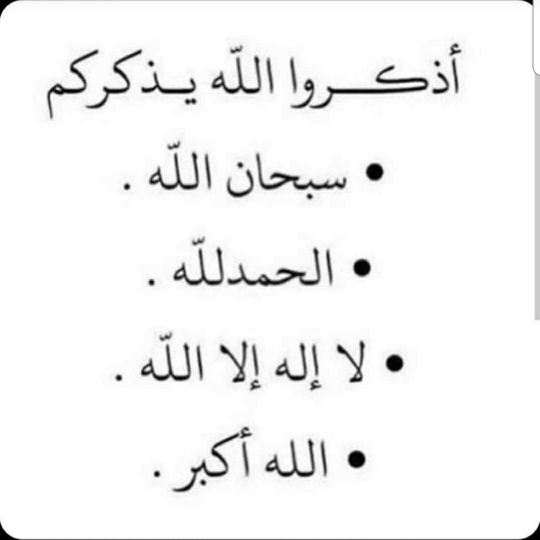 أذكـــروا اللّه يـذكركم
• سبحان اللّه .
• الحمدللّه .
• لا إله إلا اللّه .
• الله أكبر .